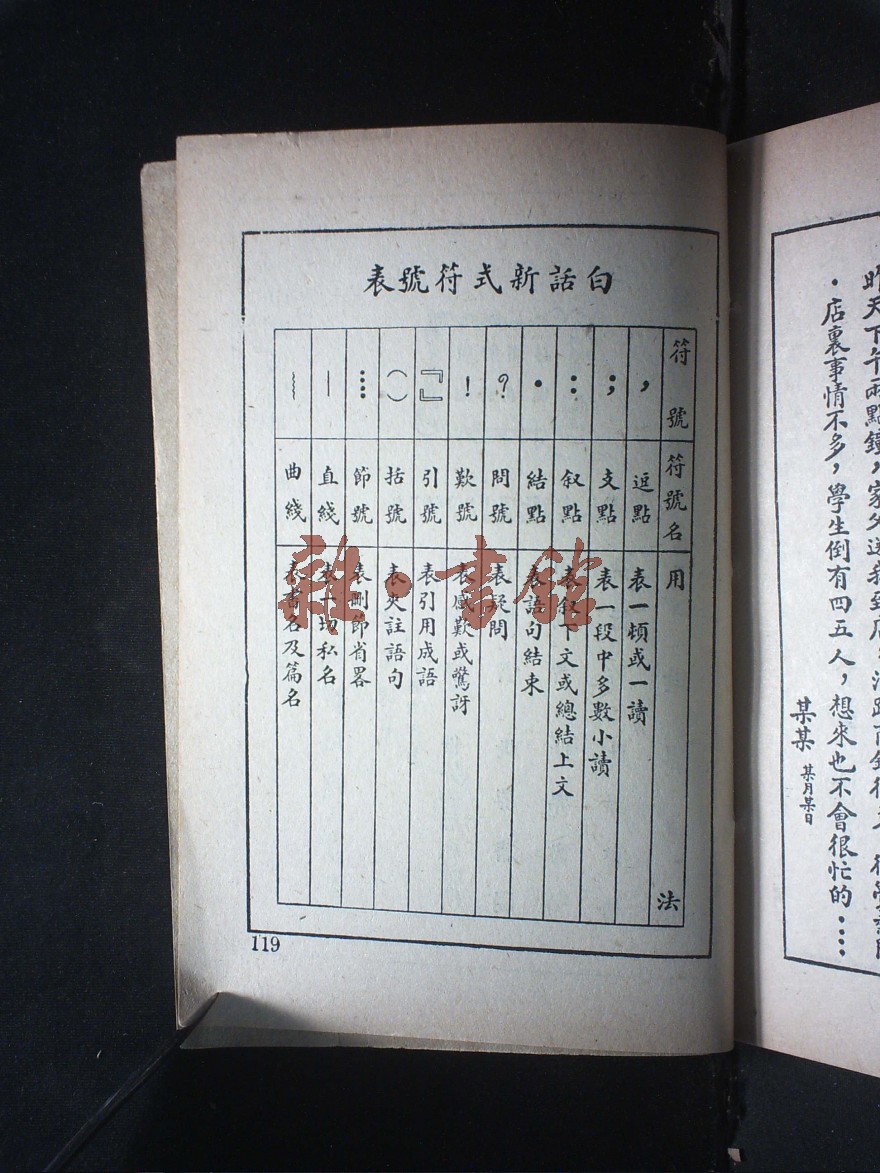 昨天下午兩點鐘，家父送我到店
・店裏事情不多，學生倒有四五人，想來也不會很忙的・・・・
某某 某月某日
白話新式符號表
符號 符號名 用法
， 逗點 表一頓或一讀
； 支點 表一段中多數小讀
： 叙點 表叙下文或總結上文
・ 結點 表語句結束
？ 問號 表疑問
！ 歎號 表感歎或驚訝
『』 引號 表引用成語
（） 括號 表夾註語句
…… 節號 表刪節省畧
｜ 直綫 表一切私名
﹏ 曲綫 表書名及篇名
119
雜・書館